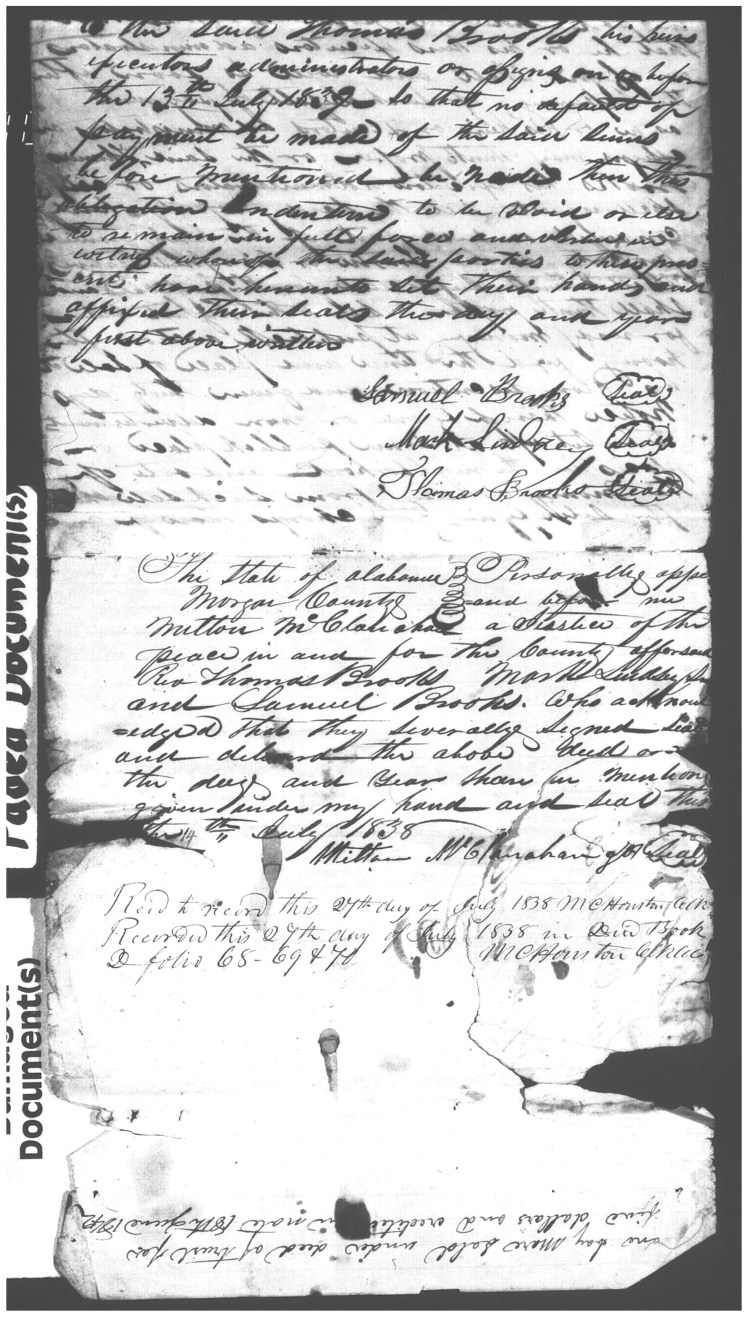 to the said Thomas Brooks his heirs
executors administrators or assigns on or before
the 13th July 1839 So that no default of
payment be made of the said Sums
before mentioned be made then this
obligation Indenture to be Void or else
to remain in full force and virtue in
witness whereof the said parties to these pres-
ents have hereunto Set their hands and
affixed their Seals the day and year
first above written
Samuel Brooks Seal
Mark Lindsey Seal
Thomas Brooks Seal
The State of alabama Personally appe
Morgan County and before me
Milton McClanahan a Justice of the
peace in and for the County afforsaid
Rev Thomas Brooks Mark Lindsey
and Samuel Brooks. Who acknowl
=edged That they Severally Signed
and delivered the above deed on
the day and Year therein mention
given under my hand and Seal this
the 14th July 1838
Milton McClanahan JP Seal
Recd to record this 27th day of July 1838 MC Houston Clk
Recorded this 27th day of July 1838 in Deed Book
D folio 68-69 & 70 MC Houston
one bay Mare Sold under deed of trust for
five dollars and credited on note 18th June 1842
Faded Document(s)
Damaged
Document(s)